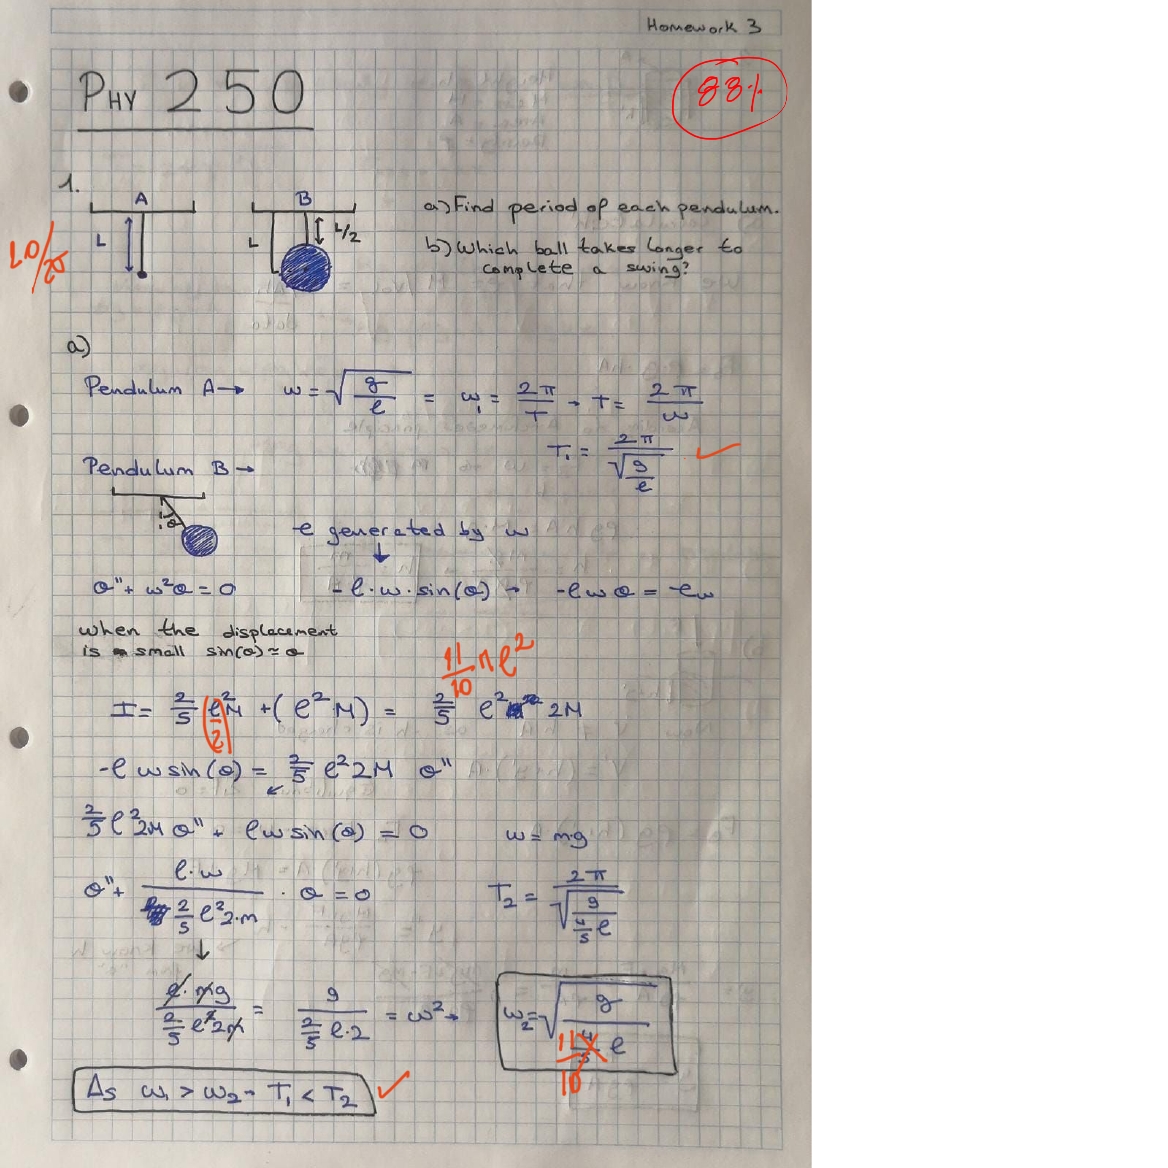 Homework 3
PHY 250
88%
1.
A
L
B
L
L/2
a) Find period of each pendulum.
b) Which ball takes longer to
complete a swing?
20/25
a)
Pendulum A → w = √(g/l) = w₁ = 2π/T → T = 2π/w
T₁ = 2π/√(g/l) ✓
Pendulum B →
θ
-τ generated by w
↓
θ'' + w²θ = 0
-l·w·sin(θ) → -lwθ = -τw
when the displacement
is small sin(θ) ≈ θ
11/10 Ml²
I = 2/5 l²/2 M + (l² M) = 2/5 l² 2M
-l w sin(θ) = 2/5 l² 2M θ''
2/5 l² 2M θ'' + l w sin(θ) = 0
w = mg
θ'' + l·w / 2/5 l² 2·m · θ = 0
T₂ = 2π/√(g/(4/5 l))
↓
l·mg / 2/5 l² 2m = g / 2/5 l·2 = w² →
w₂ = √(g/(4/5 l))
11/10
As w₁ > w₂ → T₁ < T₂ ✓